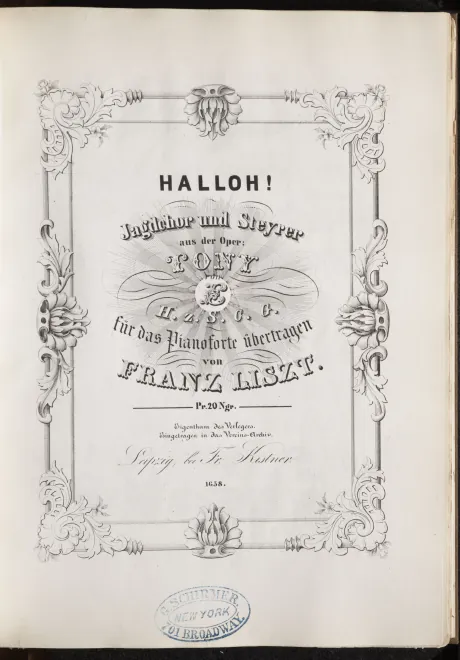 HALLOH!
Jagdchor und Steyrer
aus der Oper:
TONY
von
E
H. Z. S. C. G.
für das Pianoforte übertragen
von
FRANZ LISZT.
Pr. 20 Ngr.
Eigenthum des Verlegers.
Eingetragen in das Vereins-Archiv.
Leipzig, bei Fr. Kistner.
1658.
G. SCHIRMER,
NEW YORK
701 BROADWAY.